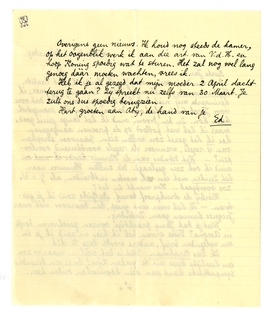 Overigens geen nieuws. Ik houd nog steeds de kamer,
op het oogenblik werk ik aan die art. van V.d.H. en
hoop Koning spoedig wat te sturen. Het zal nog wel lang
genoeg daar moeten wachten, vrees ik.
Heb ik je al gezegd dat mijn moeder 2 April dacht
terug te gaan? Zij spreekt nu zelfs van 30 Maart. Je
zult ons dus spoedig terugzien.
Hart. groeten aan Atty, de hand van je
Ed.